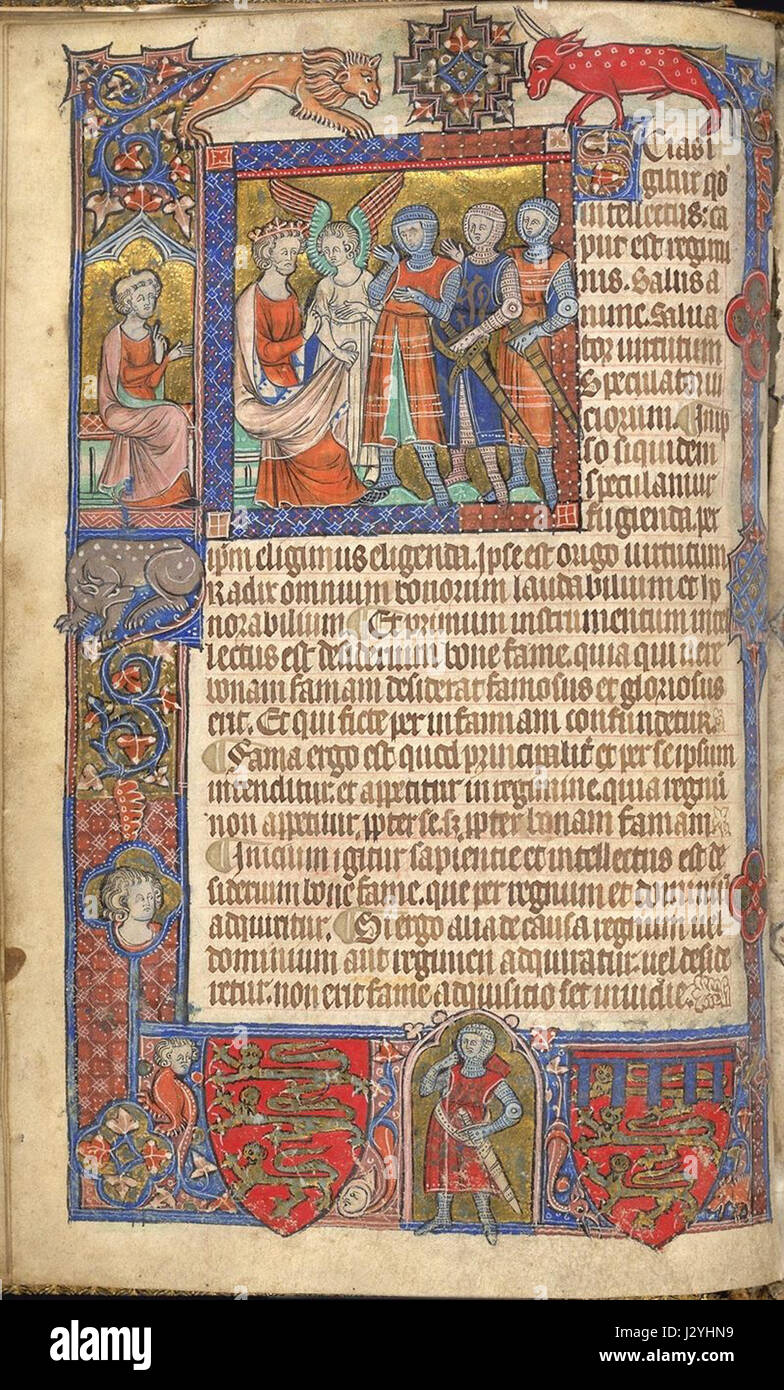 Scias i
gitur qd'
intellectus: ca
put est regimi
nis. Salus a
nime. Salua
tor uirtutum
Speculator ui
ciorum. In ip
so siquidem
speculamur
fugienda. per
ipm eligimus eligenda. Ipse est origo uirtutum
Radix omnium bonorum laudabilium et ho
norabilium Et primum instrumentum intel
lectus est desiderium bone fame. quia qui uere
bonam famam desiderat famosus et gloriosus
erit. Et qui ficte per infamiam confundetur.
Fama ergo est quod principalit' et per se ipsum
intenditur et appetitur in regimine. quia regnum
non appetitur ppter se. s; ppter bonam famam
Inicium igitur sapientie et intellectus est de
siderium bone fame. que per regnum et dominium
adquiritur. Si ergo alia de causa regnum uel
dominium aut regimen adquiratur uel deside
retur. non erit fame adquisitio set inuidie.
alamy
Image ID: J2YHN9
www.alamy.com